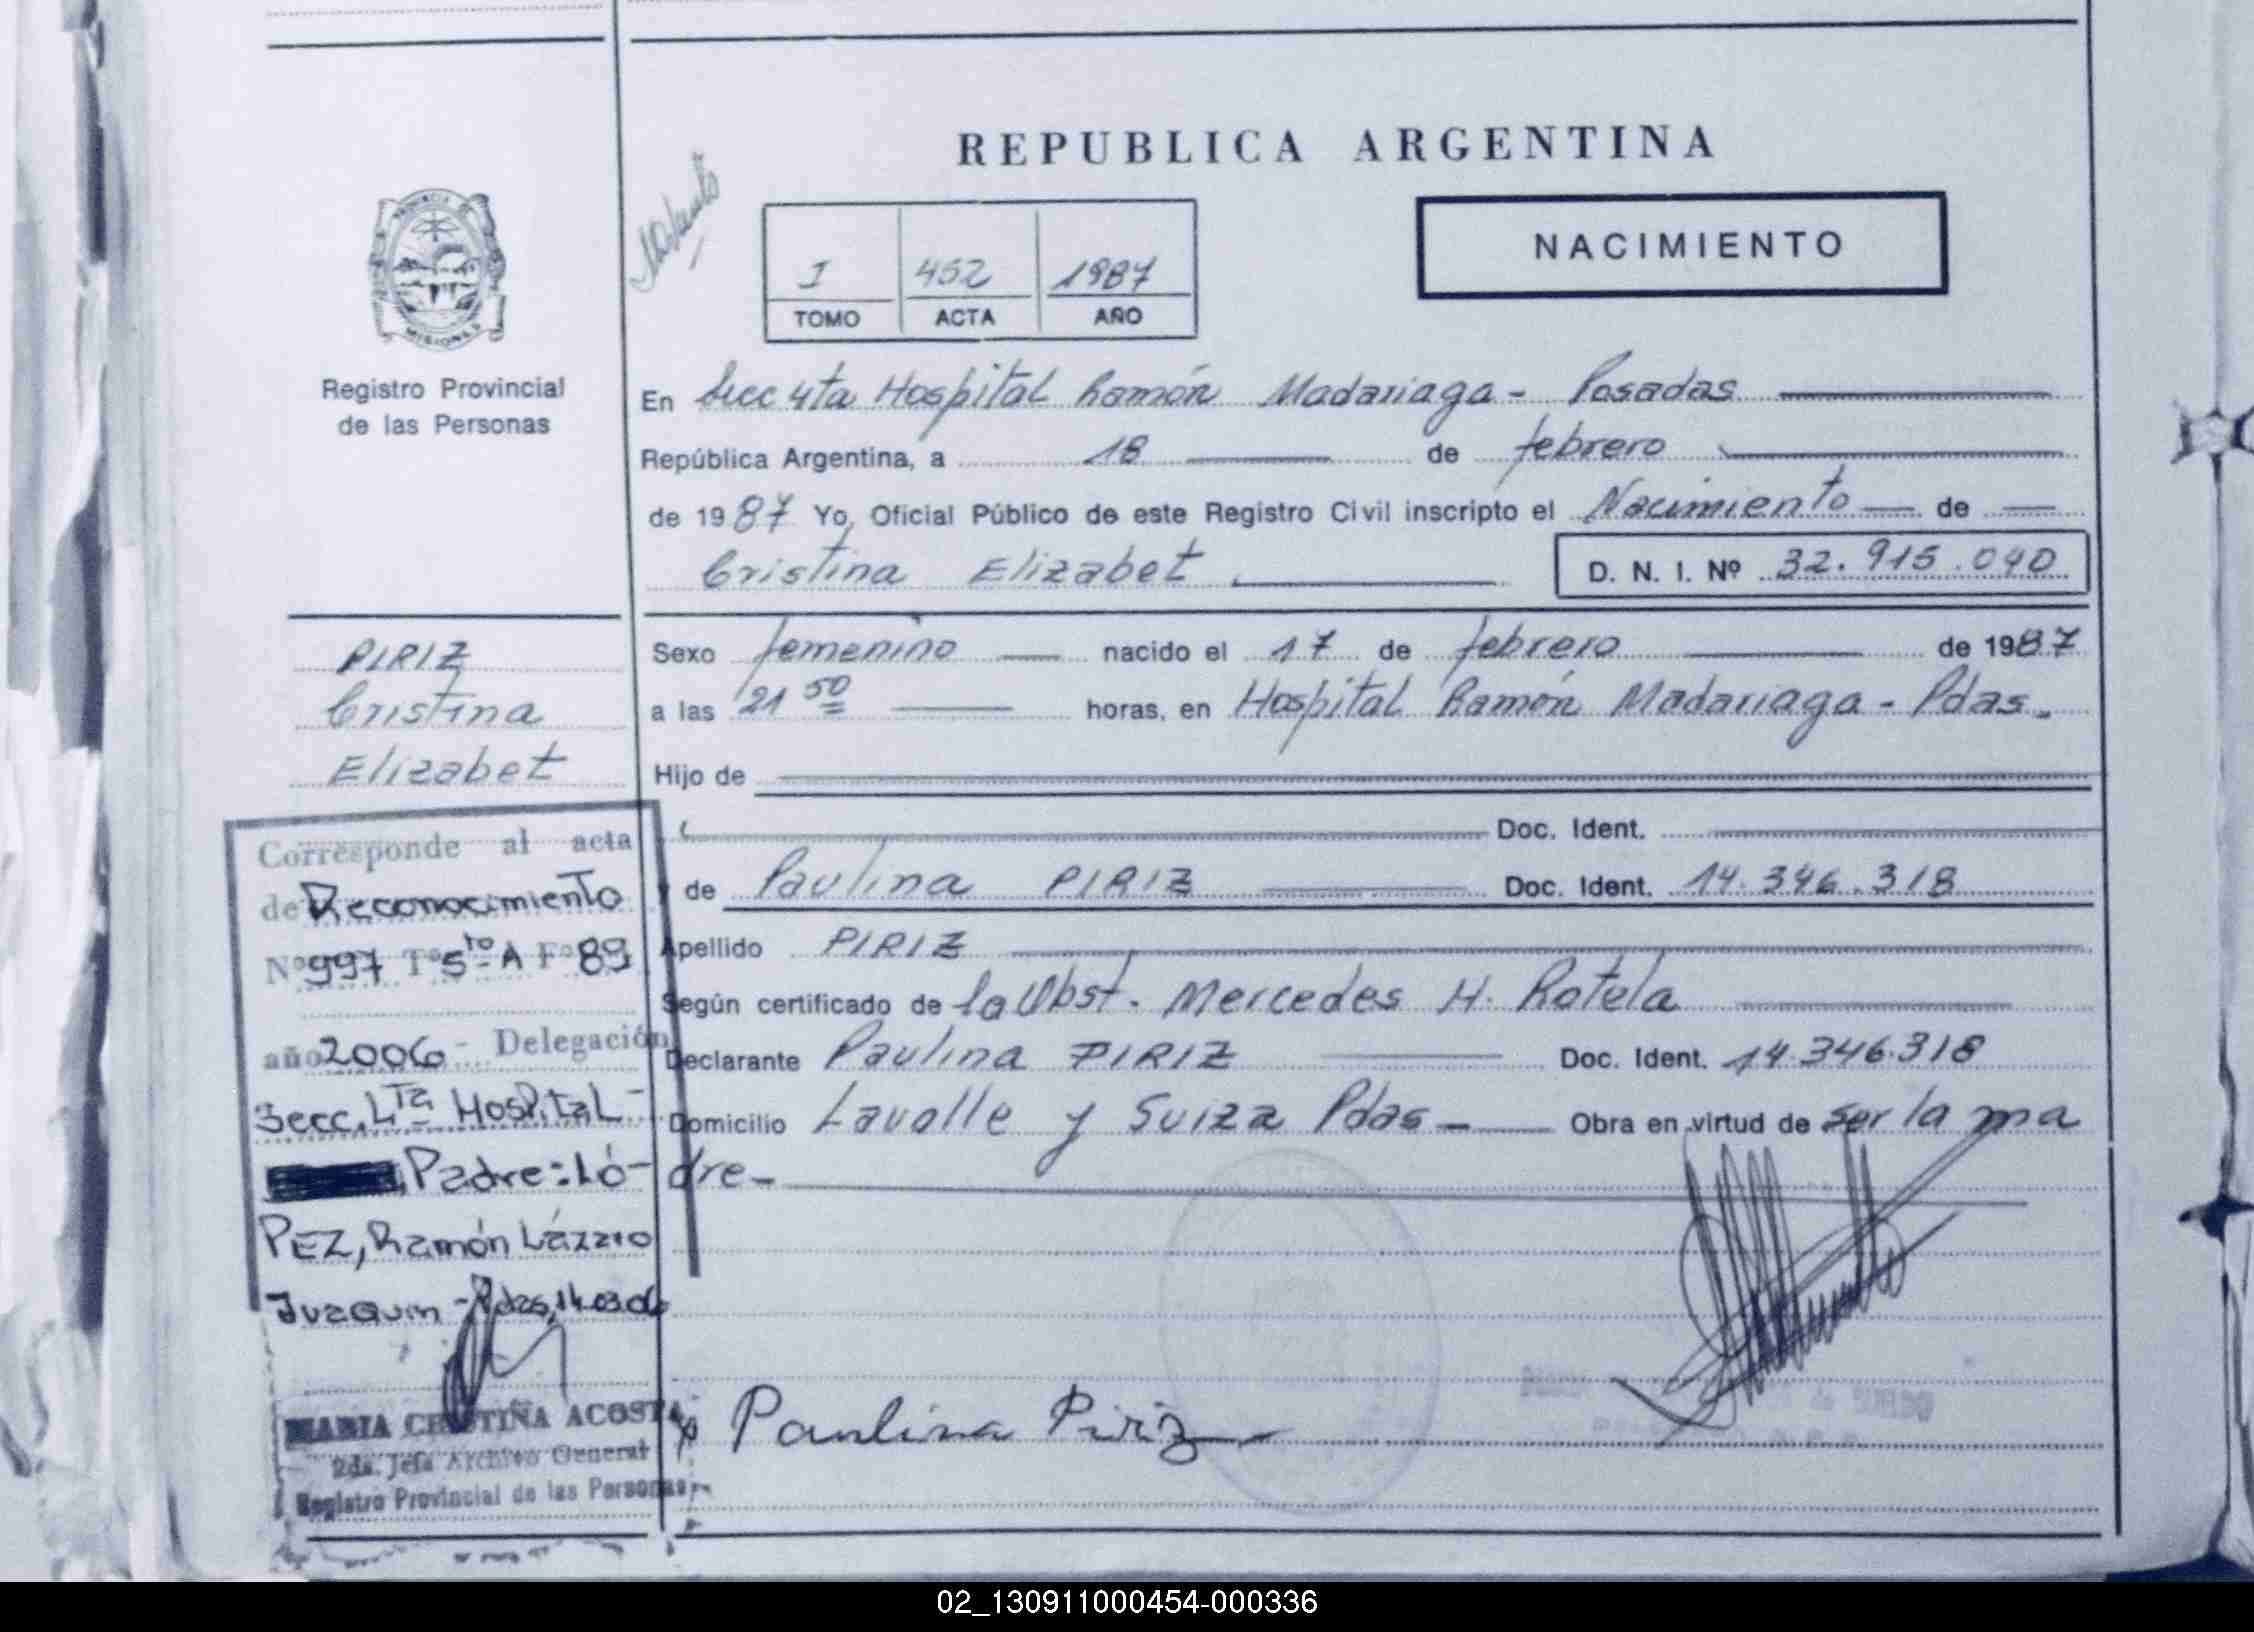 REPUBLICA ARGENTINA
NACIMIENTO
I 452 1987
TOMO ACTA AÑO
PROVINCIA DE
MISIONES
Registro Provincial
de las Personas
En Secc 4ta Hospital Ramón Madariaga - Posadas
República Argentina, a 18 de febrero
de 1987 Yo, Oficial Público de este Registro Civil inscripto el Nacimiento de
Cristina Elizabet
D. N. I. Nº 32.915.040
PIRIZ
Cristina
Elizabet
Sexo femenino nacido el 17 de febrero de 1987
a las 21 50 horas, en Hospital Ramón Madariaga - Pdas.
Hijo de
Doc. Ident.
y de Paulina PIRIZ Doc. Ident. 14.346.318
Apellido PIRIZ
Según certificado de la Obst. Mercedes H. Rotela
Declarante Paulina PIRIZ Doc. Ident. 14.346.318
Domicilio Lavalle y Suiza Pdas - Obra en virtud de ser la ma
dre -
Paulina Piriz
Corresponde al acta
de Reconocimiento
Nº 997 Tº 5to - A Fº 89
año 2006 - Delegación
Secc. 4ta Hospital -
Padre: LÓ-
PEZ, Ramón Lázaro
Juaquin - Pdas, 14.03.06
MARIA CRISTINA ACOSTA
2da. Jefa Archivo General
Registro Provincial de las Personas
02_130911000454-000336